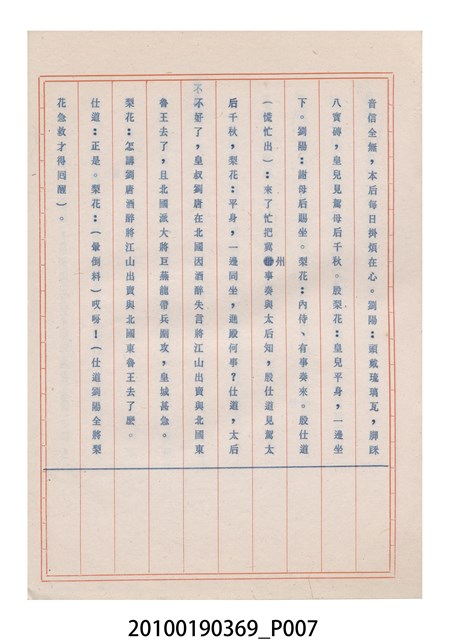 音信全無，本后每日掛煩在心。劉陽：頭戴琉璃瓦，脚踩
八寳磚，皇兒見駕母后千秋。殷梨花：皇兒平身，一邊坐
下。劉陽：謝母后賜坐。梨花：內侍、有事奏來。殷仕道
（慌忙出）：來了忙把冀州事奏與太后知，殷仕道見駕太
后千秋，梨花：平身，一邊同坐，進殿何事？仕道，太后
不好了，皇叔劉唐在北國因酒醉失言將江山出賣與北國東
魯王去了，且北國派大將巨燕龍帶兵圍攻，皇城甚急。
梨花：怎講劉唐酒醉將江山出賣與北國東魯王去了麽。
仕道：正是。梨花：（暈倒科）哎呀！（仕道劉陽全將梨
花急救才得囘醒）。
20100190369_P007